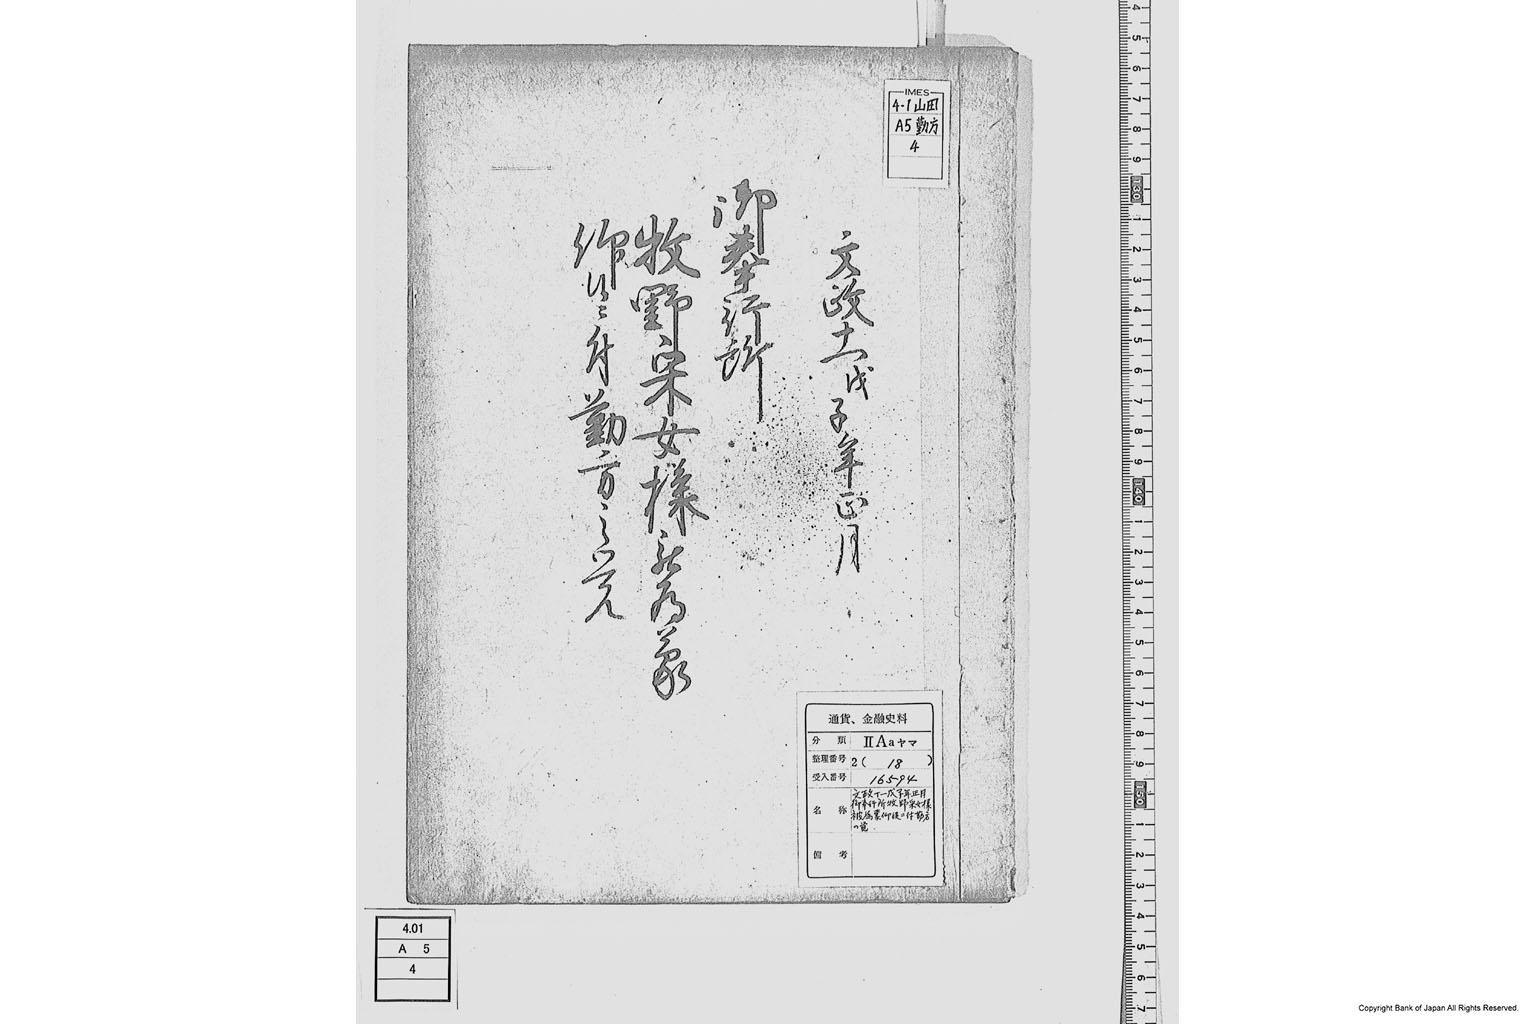 IMES
4・1山田
A5勤方
4
文政十一戊
子年正月
御奉行所
牧野采女様被為蒙
仰候ニ付勤方之覚
通貨、金融史料
分類 ⅡAaヤマ
整理番号 2( 18 )
受入番号 16594
名称 文政十一戊子年正月
御奉行所牧野采女様
被為蒙仰候ニ付勤方
の覚
備考
4.01
A 5
4
Copyright Bank of Japan All Rights Reserved.